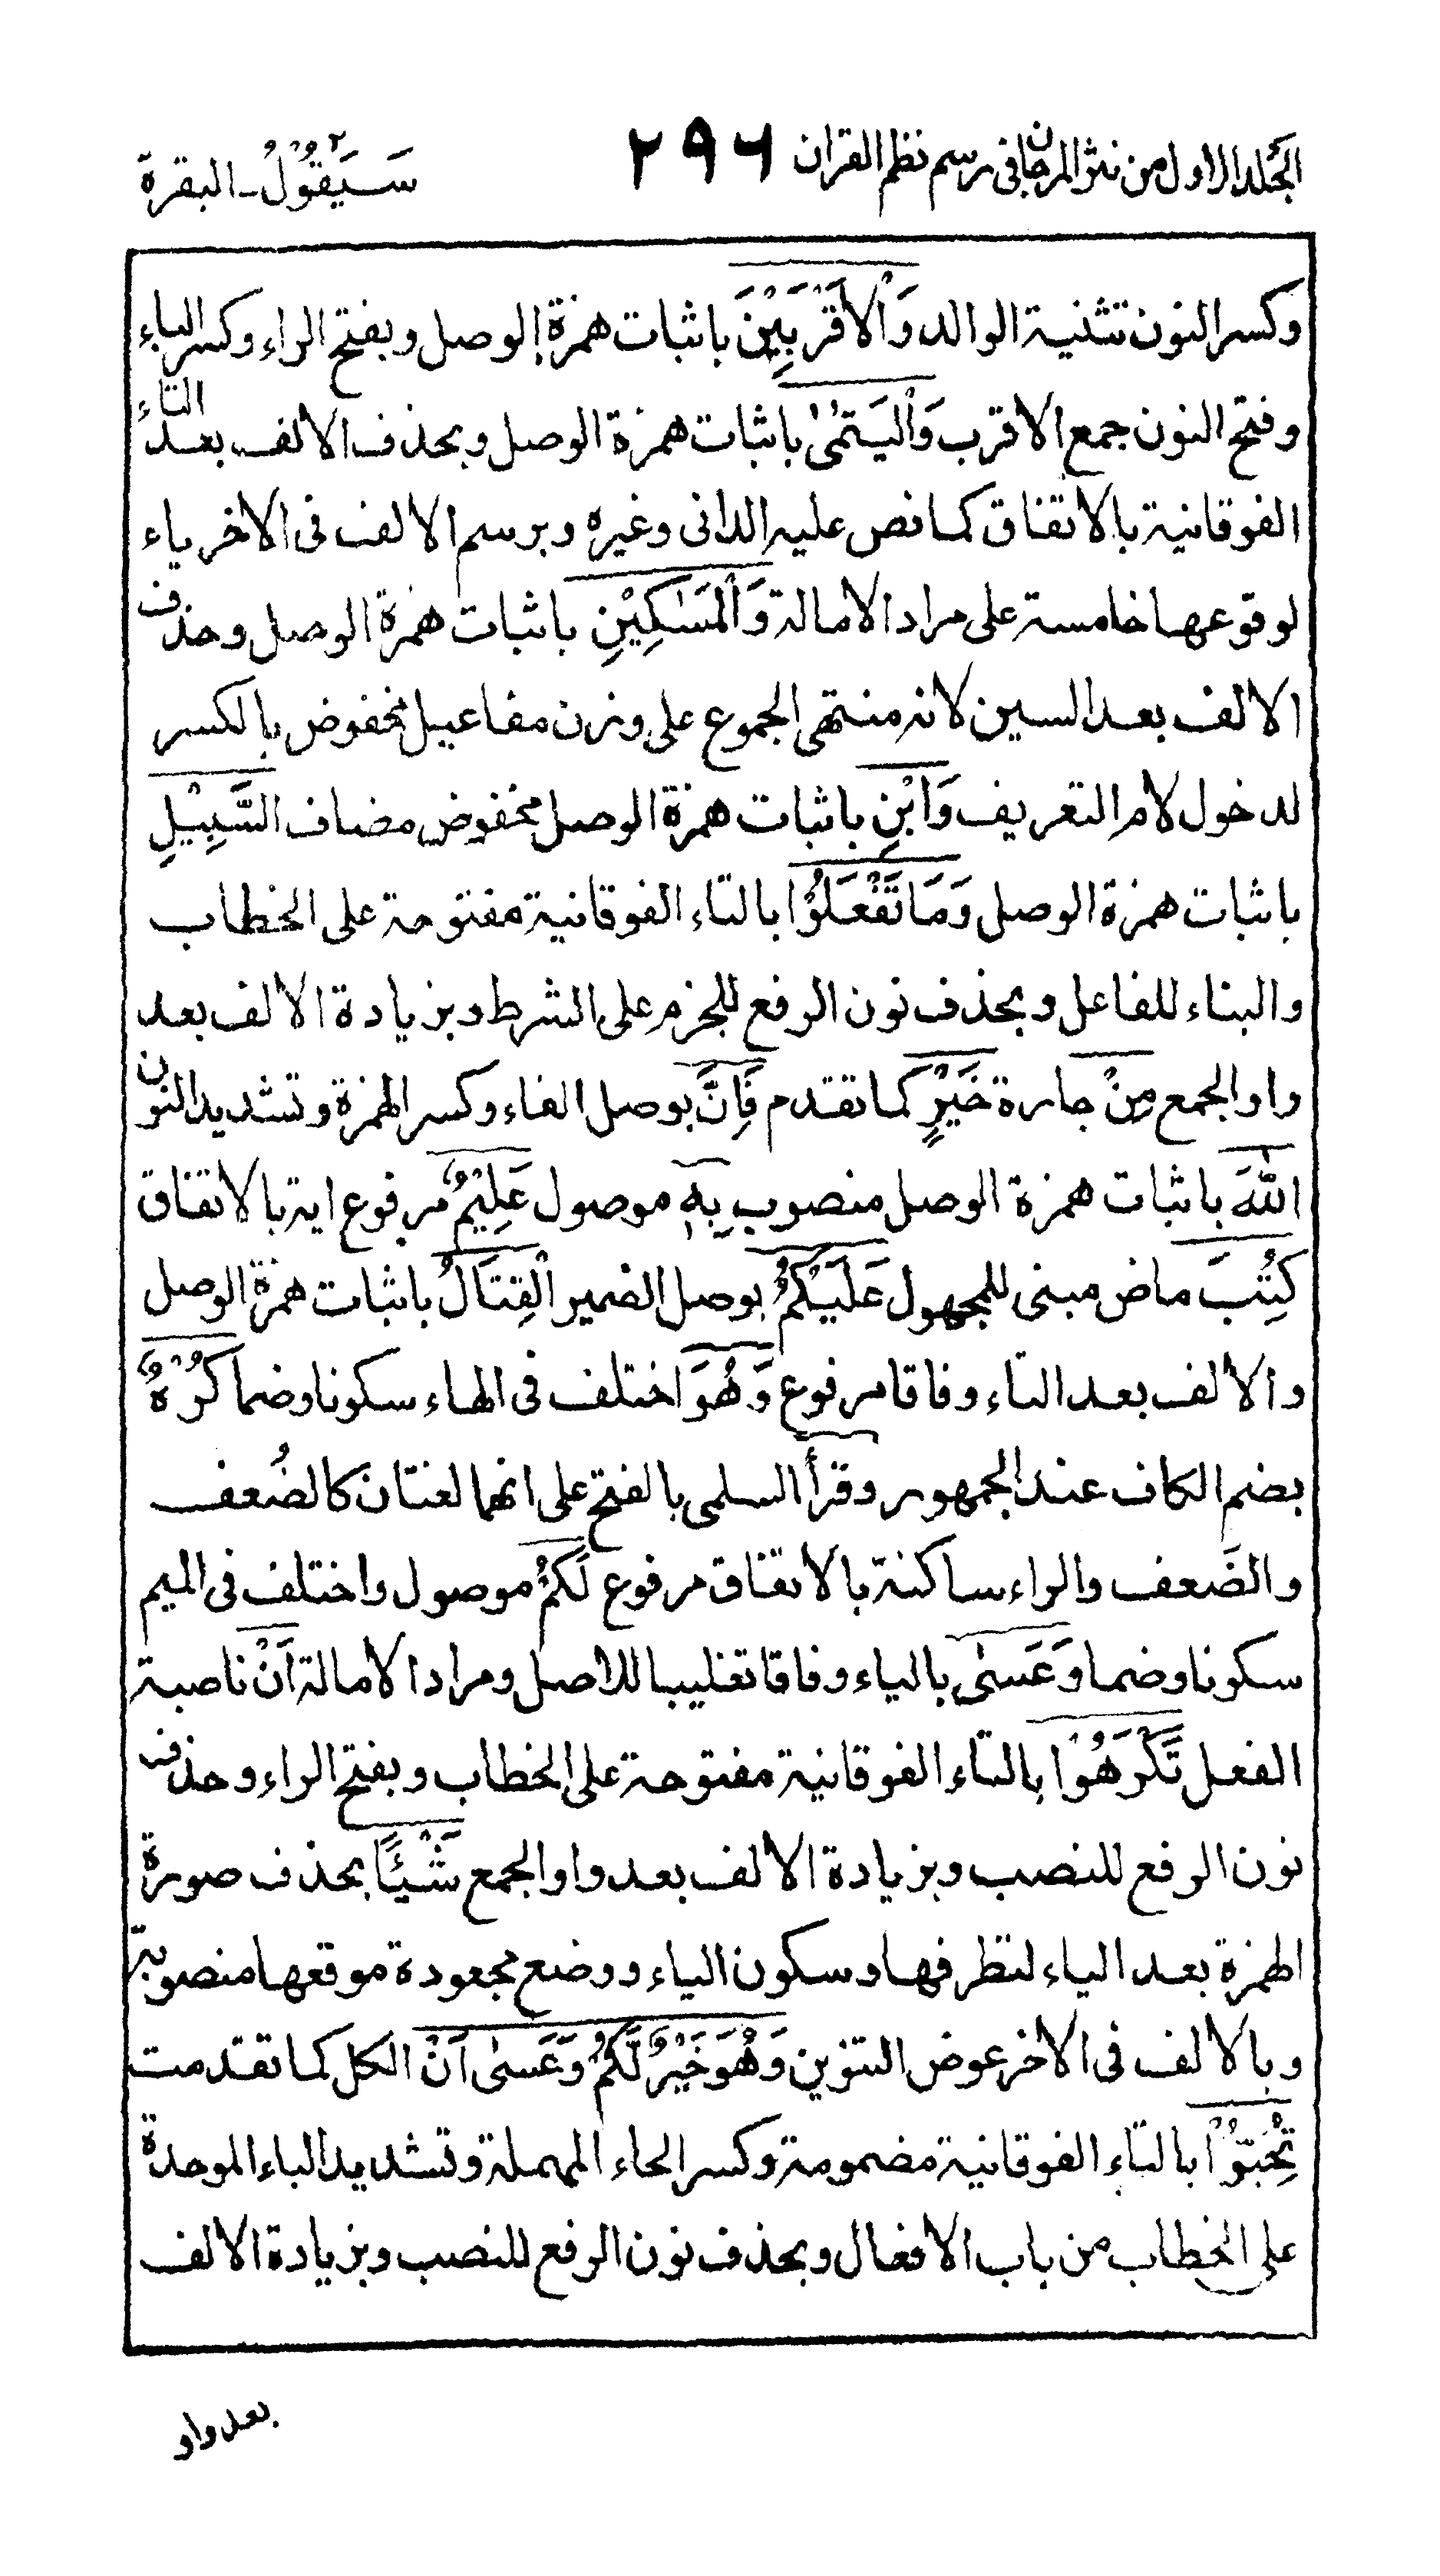 الجلد الاول من نثر المرجان فى رسم نظم القران ٢٩٦ سَيَقُوْلُ ٢ ـ البقرة
وكسر النون تثنية الوالد وَالْاَقْرَبِيْنَ باثبات همزة الوصل وبفتح الراء وكسر الباء
وفتح النون جمع الاقرب وَالْيَتٰمٰى باثبات همزة الوصل وبحذف الالف بعد التاء
الفوقانية بالاتفاق كما نص عليه الدانى وغيره وبرسم الالف فى الاخر ياء
لوقوعها خامسة على مراد الامالة وَالْمَسٰكِيْنِ باثبات همزة الوصل وحذف
الالف بعد السين لانه منتهى الجموع على وزن مفاعيل مخفوض بالكسر
لدخول لام التعريف وَابْنِ باثبات همزة الوصل مخفوض مضاف السَّبِيْلِ
باثبات همزة الوصل وَمَا تَفْعَلُوْا بالتاء الفوقانية مفتوحة على الخطاب
والبناء للفاعل وبحذف نون الرفع للجزم على الشرط وبزيادة الالف بعد
واو الجمع مِنْ جارة خَيْرٍ كما تقدم فَاِنَّ بوصل الفاء وكسر الهمزة وتشديد النون
اللّٰهَ باثبات همزة الوصل منصوب بِهٖ موصول عَلِيْمٌ مرفوع اية بالاتفاق
كُتِبَ ماض مبنى للمجهول عَلَيْكُمُ بوصل الضمير الْقِتَالُ باثبات همزة الوصل
والالف بعد التاء وفاقا مرفوع وَهُوَ اختلف فى الهاء سكونا وضما كُرْهٌ
بضم الكاف عند الجمهور وقرأ السلمى بالفتح على انهما لغتان كالضُعف
والضَعف والراء ساكنة بالاتفاق مرفوع لَكُمْ موصول واختلف فى الميم
سكونا وضما وَعَسٰى بالياء وفاقا تغليبا للاصل ومراد الامالة اَنْ ناصبة
الفعل تَكْرَهُوْا بالتاء الفوقانية مفتوحة على الخطاب وبفتح الراء وحذف
نون الرفع للنصب وبزيادة الالف بعد واو الجمع شَيْئًا بحذف صورة
الهمزة بعد الياء لتطرفها وسكون الياء ووضع مجعودة موقعها منصوبة
وبالالف فى الاخر عوض التنوين وَهُوَ خَيْرٌ لَّكُمْ وَعَسٰى اَنْ الكل كما تقدمت
تُحِبُّوْا بالتاء الفوقانية مضمومة وكسر الحاء المهملة وتشديد الباء الموحدة
على الخطاب من باب الافعال وبحذف نون الرفع للنصب وبزيادة الالف
بعد واو